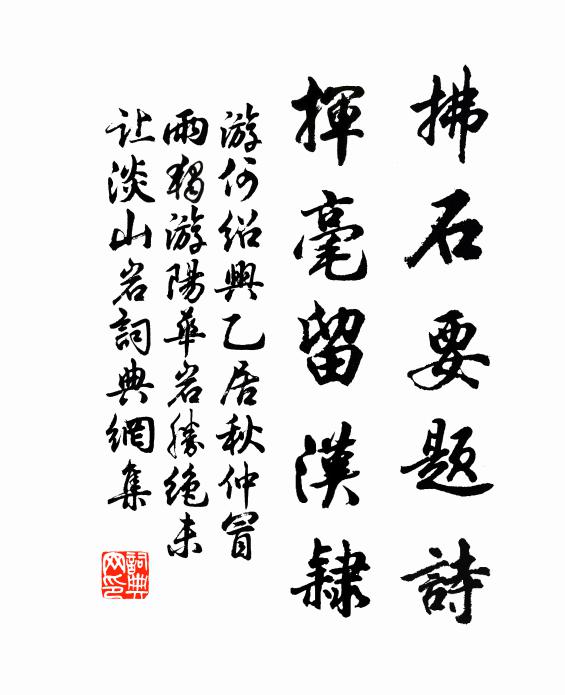 拂石要题詩
揮毫留漢隸
游何绍興乙居秋仲冒
雨獨游陽華岩勝绝未
让淡山岩詞典網集
詞典网印